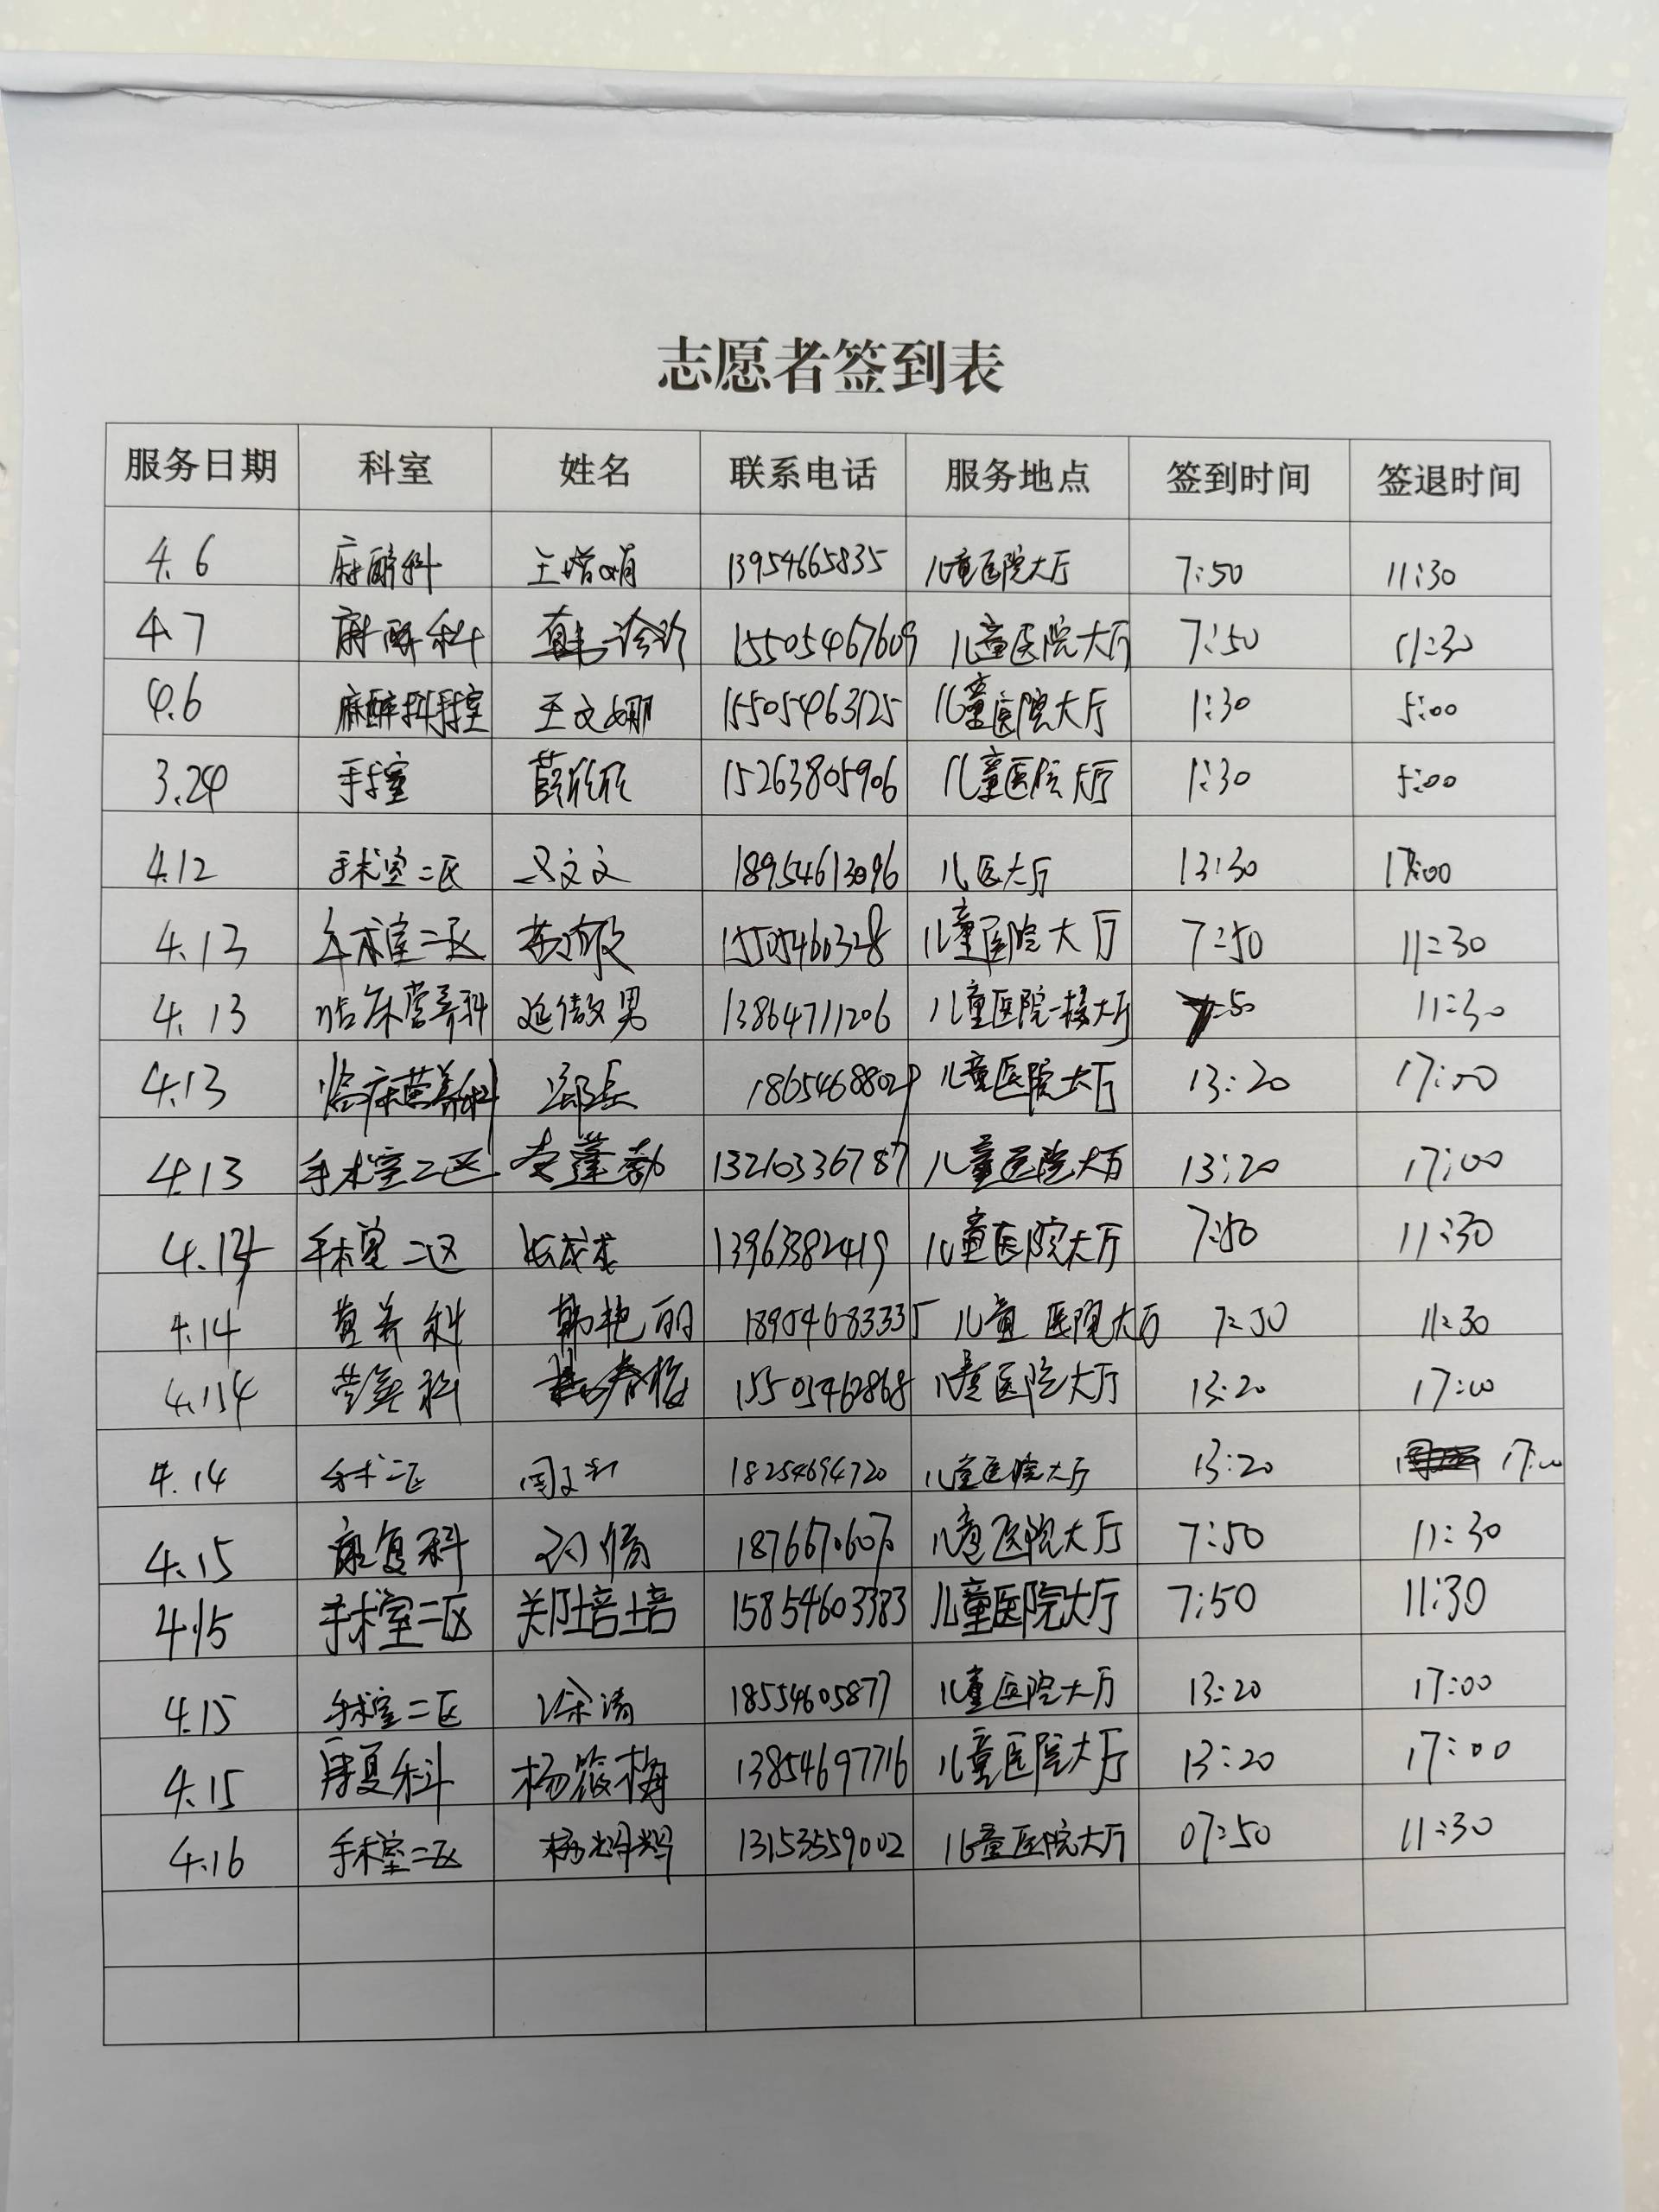 志愿者签到表
服务日期 科室 姓名 联系电话 服务地点 签到时间 签退时间
4.6 麻醉科 王增娟 13954665835 儿童医院大厅 7:50 11:30
4.7 麻醉科 15505467609 儿童医院大厅 7:50 11:30
4.6 麻醉科手室 王文娜 15505463125 儿童医院大厅 1:30 5:00
3.24 手室 薛欣欣 15263805906 儿童医院大厅 1:30 5:00
4.12 手术室二区 文文 18954613096 儿医大厅 13:30 17:00
4.13 手术室二区 15505460328 儿童医院大厅 7:50 11:30
4.13 临床营养科 延傲男 13864711206 儿童医院一楼大厅 7:50 11:30
4.13 临床营养科 18654688029 儿童医院大厅 13:20 17:00
4.13 手术室二区 李蓬勃 13210336787 儿童医院大厅 13:20 17:00
4.14 手术室二区 13963382419 儿童医院大厅 7:50 11:30
4.14 营养科 韩艳丽 18954683335 儿童医院大厅 7:50 11:30
4.14 营养科 春梅 15505462868 儿童医院大厅 13:20 17:00
4.14 手术二区 18254694720 儿童医院大厅 13:20 17:00
4.15 康复科 刘倩 儿童医院大厅 7:50 11:30
4.15 手术室二区 郑培培 15854603383 儿童医院大厅 7:50 11:30
4.15 手术室二区 徐涛 18554605877 儿童医院大厅 13:20 17:00
4.15 康复科 杨筱梅 13854697716 儿童医院大厅 13:20 17:00
4.16 手术室二区 13153559002 儿童医院大厅 07:50 11:30